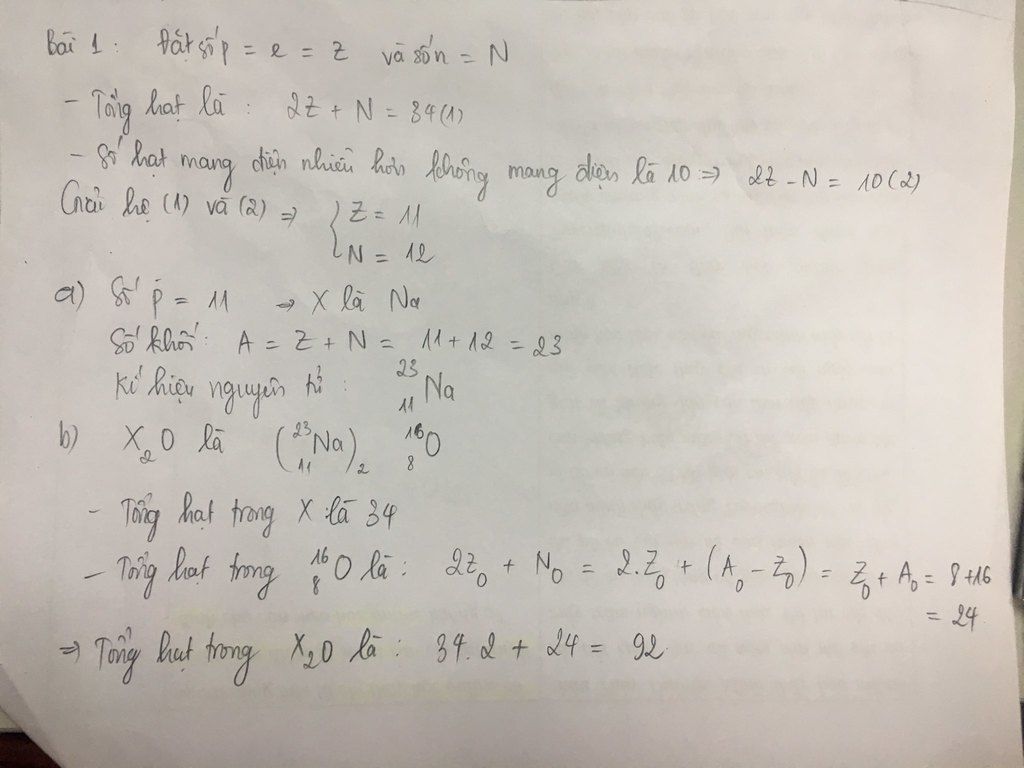 Bài 1 : Đặt số p = e = Z và số n = N
- Tổng hạt là : 2Z + N = 34 (1)
- Số hạt mang điện nhiều hơn không mang điện là 10 => 2Z - N = 10 (2)
Giải hệ (1) và (2) => { Z = 11
N = 12
a) Số p = 11 -> X là Na
Số khối : A = Z + N = 11 + 12 = 23
Kí hiệu nguyên tử : ²³₁₁Na
b) X₂O là (²³₁₁Na)₂ ¹⁶₈O
- Tổng hạt trong X là 34
- Tổng hạt trong ¹⁶₈O là : 2Z₀ + N₀ = 2.Z₀ + (A₀ - Z₀) = Z₀ + A₀ = 8 + 16
= 24
=> Tổng hạt trong X₂O là : 34.2 + 24 = 92.